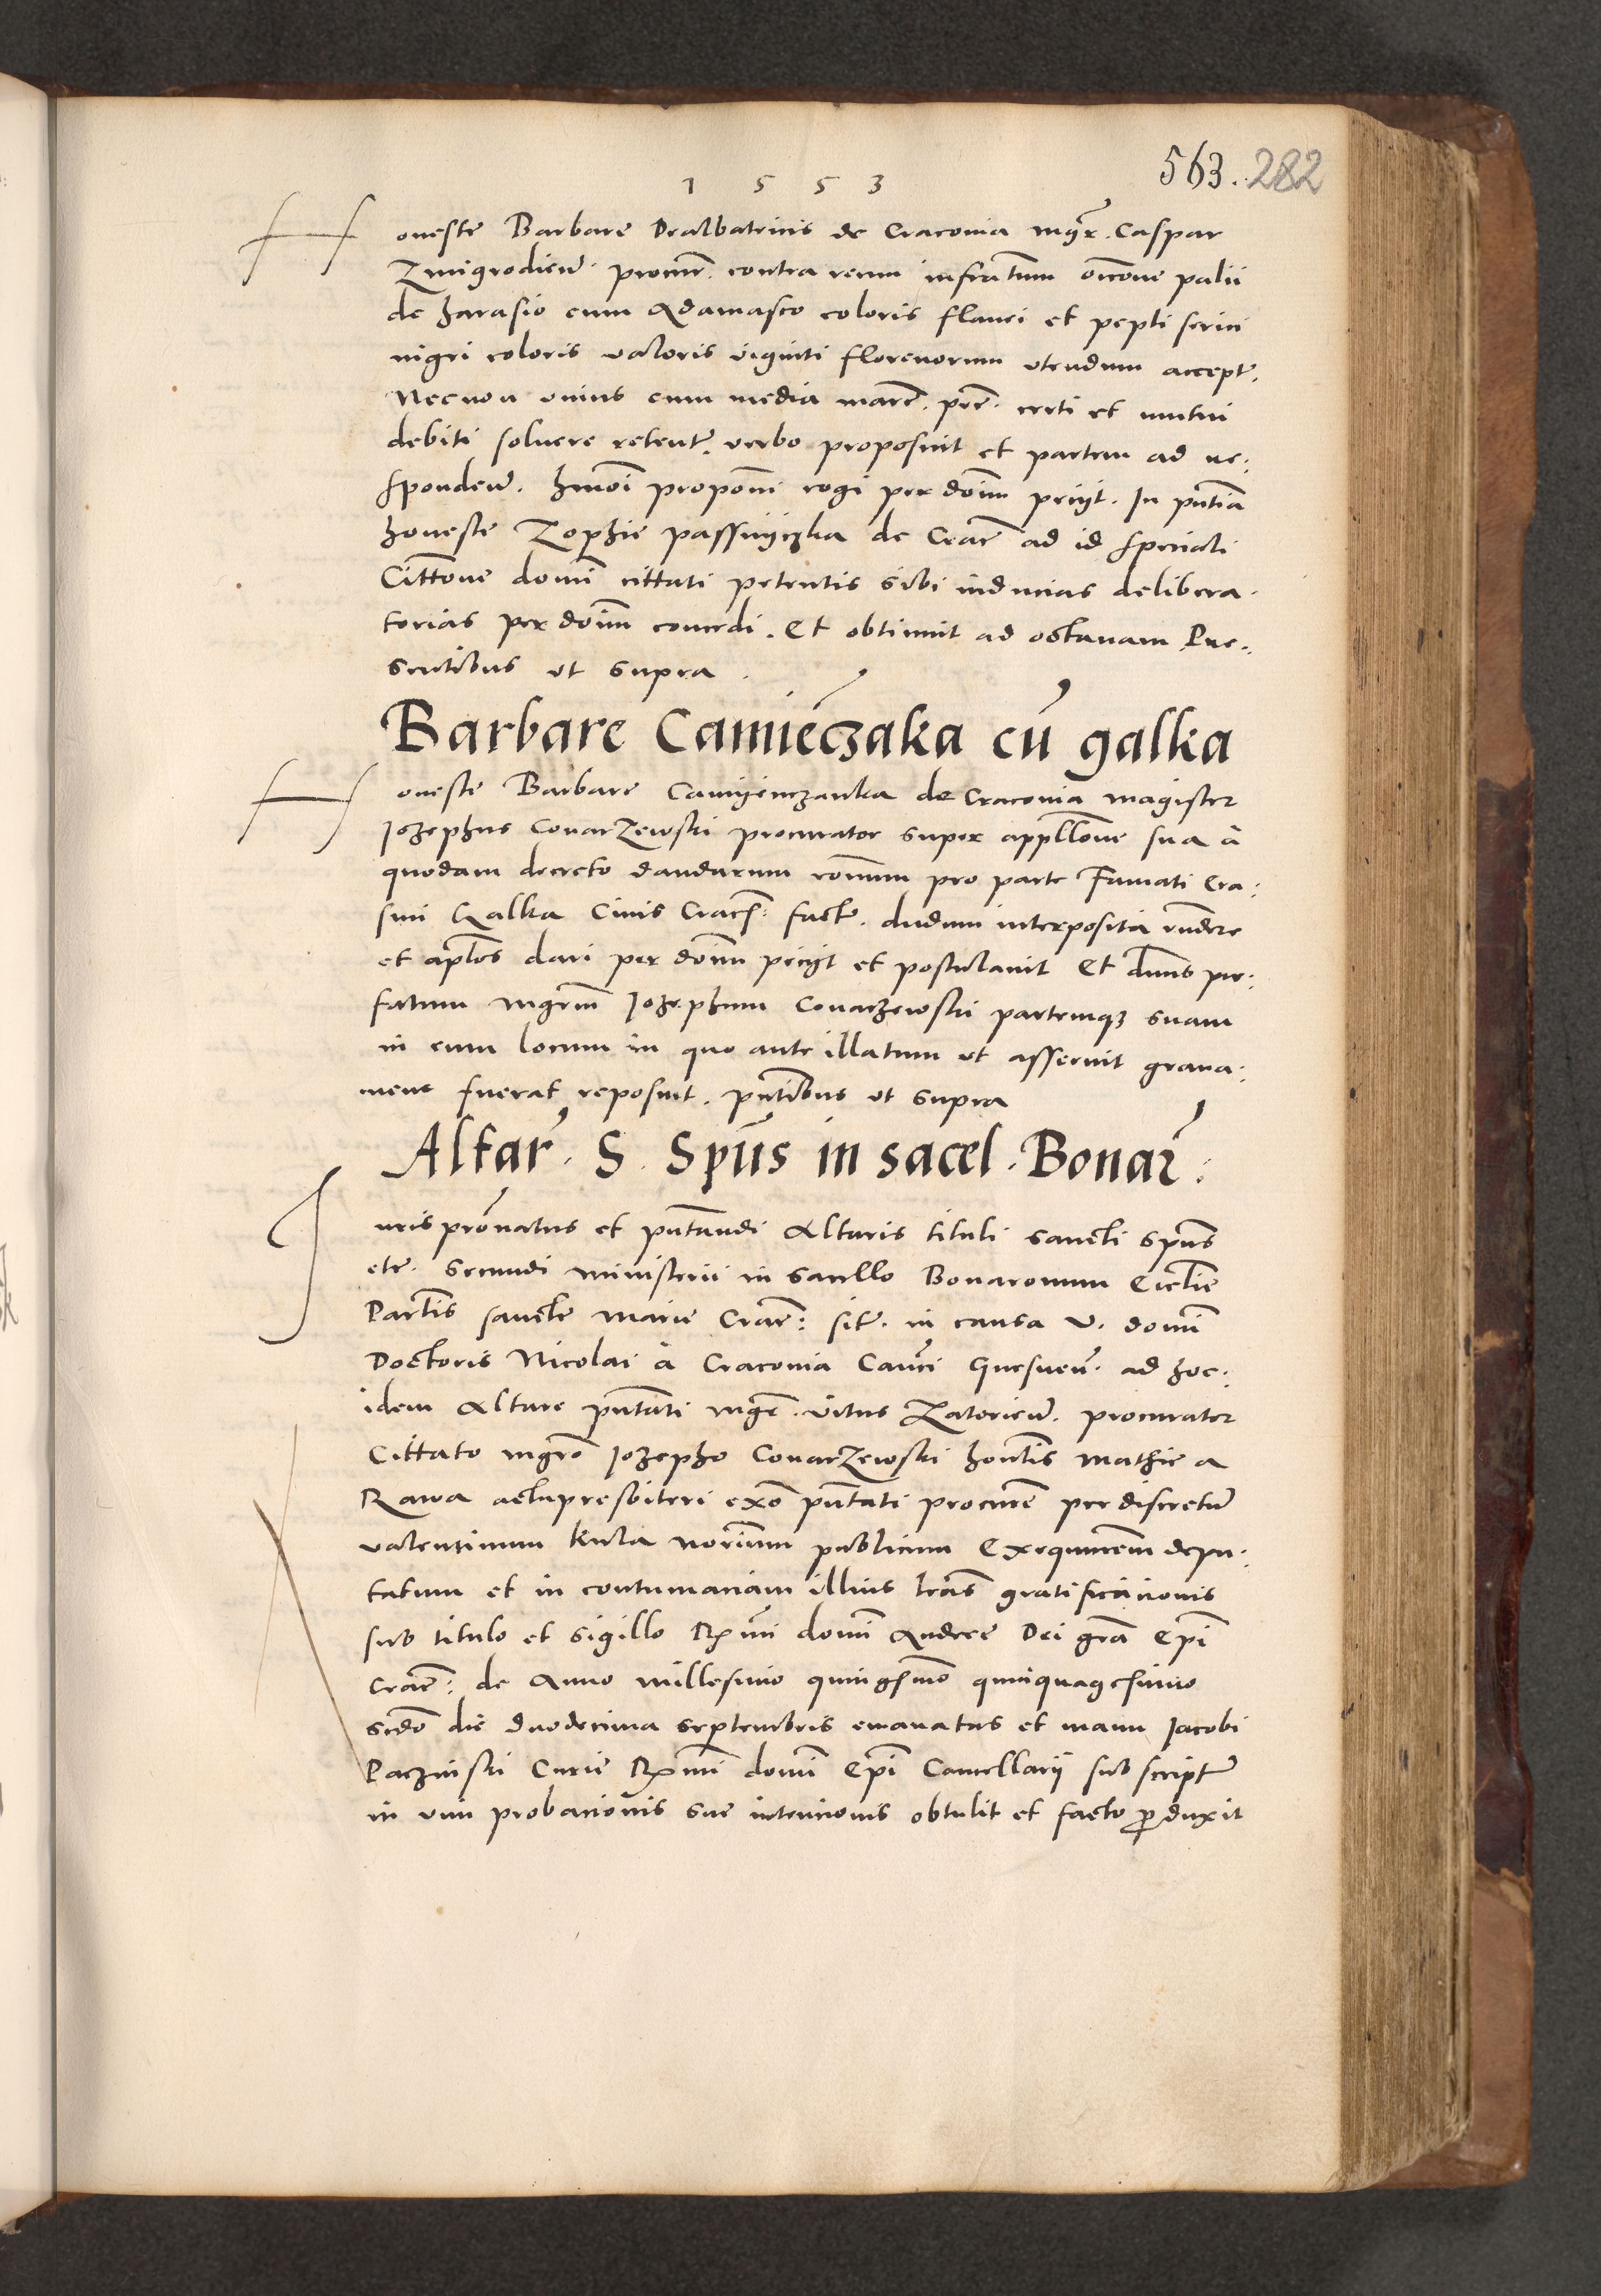 1 5 5 3
563. 282
Honeste Barbare Dealbatricis de Cracovia mgr̃. Caspar
Zmigrodieñ. procur̃. contra reum infratum occõne palii
de harasio cum Adamasco coloris flavei et pepli serici
nigri coloris valoris viginti florenorum utendum accept̃.
Necnon unius cum media marc̃. pec̃. certi et mutui
debiti solvere retent̃. verbo proposuit et partem ad re:
spondeñ. hmõi propõni cogi per dnũm peciit. In pñtia
honeste Zophie passniczka de Crac̃ ad id speciali
Cittõne domĩ cittati petentis sibi inducias delibera:
torias per dnũm concedi. Et obtinuit ad octavam Pre:
sentibus ut supra.
Barbare Camieczaka cũ galka
Honeste Barbare Camyenczanka de Cracovia magister
Iozephus Convarzewski procurator super appllõne sua à
quodam decreto dandarum rõnum pro parte Famati Era:
smi Galka Civis Cracẽ: fact̃. dudum interposita rñdere
et aptõs dari per dnũm peciit et postulavit Et dñus pre:
fatum mgrũm Iozephum Convarzewski partemq3 suam
in eum locum in quo ante illatum ut asseruit grava:
mene fuerat reposuit. pñtibus ut supra
Altar̃. S. Spũs in sacel. Bonar̃:
Iuris prõnatus et pñtandi Altaris tituli sancti spũs
etc̃. secundi ministerii in sacello Bonaronum Ecclie
Partis sancte Marie Crac̃: sit̃. in causa V. domĩ
Doctoris Nicolai à Cracovia Canci Gnesneñ. ad hoc:
idem Altare pñtati mgr̃. vitus Zatorieñ. procurator
Cittato mgrõ Iozepho Convarzewski hontis Mathie a
Rawa actu presbiteri exõ pñtati procurẽ per discretũ
valentinum Kula notrium publicum Exequutem depu:
tatum et in contumaciam illius lras gratificacionis
sub titulo et sigillo Rx̃mi domĩ Andree Dei gra Epĩ
Crac̃: de Anno millesimo quingsmo quinquagesimo
scdo die duodecima septembris emanatas et manu Iacobi
Paczinski Curie Rx̃mi domĩ Epĩ Cancellarii subscript̃
in vim probacionis sue intencionis obtulit et facto produxit